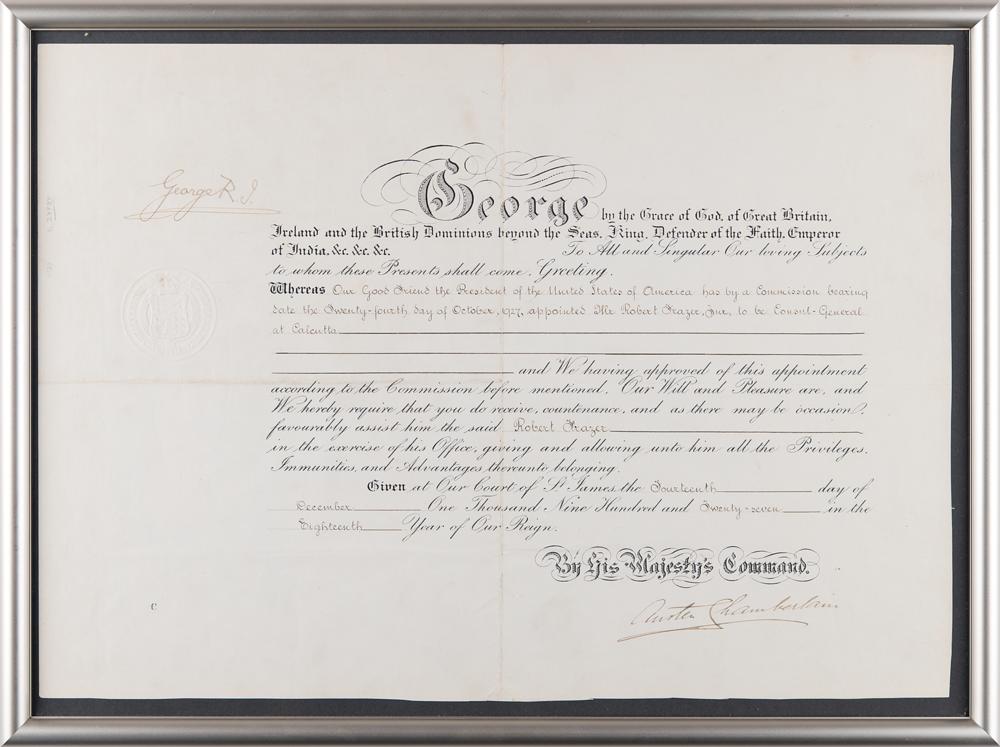 George R. I.
George by the Grace of God, of Great Britain,
Ireland and the British Dominions beyond the Seas, King, Defender of the Faith, Emperor
of India, &c. &c. &c. To All and Singular Our loving Subjects
to whom these Presents shall come, Greeting.
Whereas Our Good Friend the President of the United States of America has by a Commission bearing
date the Twenty-fourth day of October, 1927, appointed Mr Robert Frazer, Jnr, to be Consul-General
at Calcutta
and We having approved of this appointment
according to the Commission before mentioned, Our Will and Pleasure are, and
We hereby require that you do receive, countenance, and as there may be occasion,
favourably assist him the said Robert Frazer
in the exercise of his Office, giving and allowing unto him all the Privileges,
Immunities, and Advantages thereunto belonging.
Given at Our Court of St. James the Fourteenth day of
December One Thousand Nine Hundred and Twenty-seven in the
Eighteenth Year of Our Reign.
By His Majesty's Command.
Austen Chamberlain
C